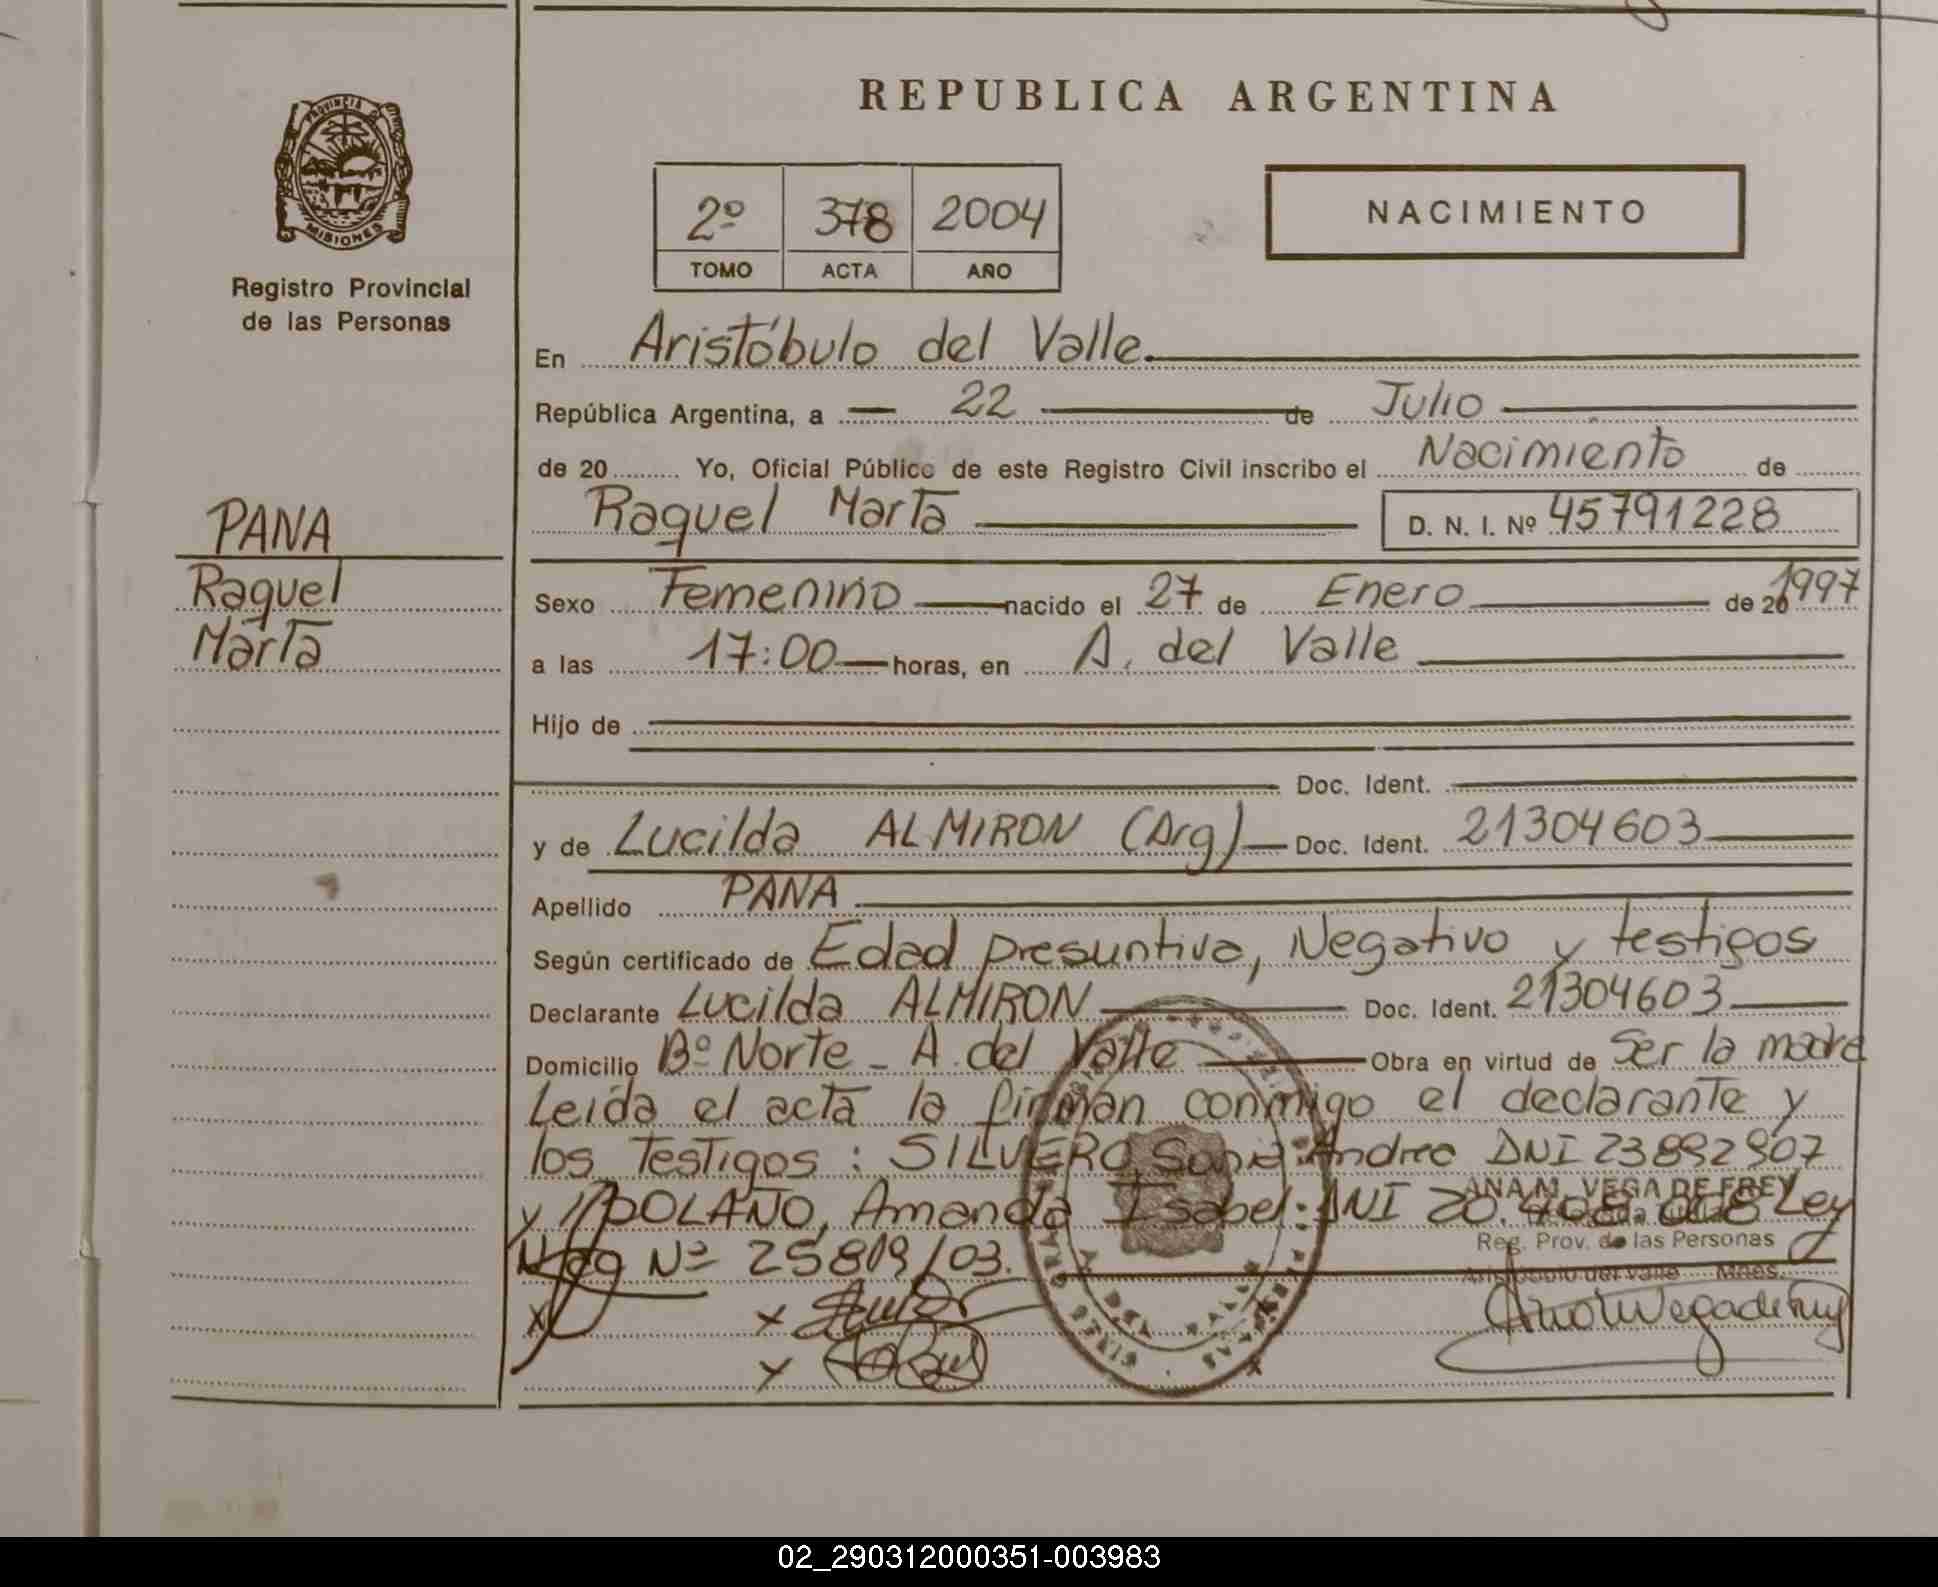 REPUBLICA ARGENTINA
PROVINCIA DE
MISIONES
Registro Provincial
de las Personas
2º 378 2004
TOMO ACTA AÑO
NACIMIENTO
En Aristóbulo del Valle.
República Argentina, a 22 de Julio
de 20 Yo, Oficial Público de este Registro Civil inscribo el Nacimiento de
Raquel Marta D. N. I. Nº 45791228
PANA
Raquel
Marta
Sexo Femenino nacido el 27 de Enero de 20 1997
a las 17:00 horas, en A. del Valle
Hijo de
Doc. Ident.
y de Lucilda ALMIRON (Arg) Doc. Ident. 21304603
Apellido PANA
Según certificado de Edad presuntiva, Negativo y testigos
Declarante Lucilda ALMIRON Doc. Ident. 21304603
Domicilio Bº Norte - A. del Valle Obra en virtud de Ser la madre
Leída el acta la firman conmigo el declarante y
los testigos: SILVERO, Andrea DNI 23892907
y Amanda Isabel: DNI 20.408.068 Ley
Nº 25819/03.
ANA M. VEGA DE FREY
Reg. Prov. de las Personas
Aristóbulo del Valle Mnes.
02_290312000351-003983